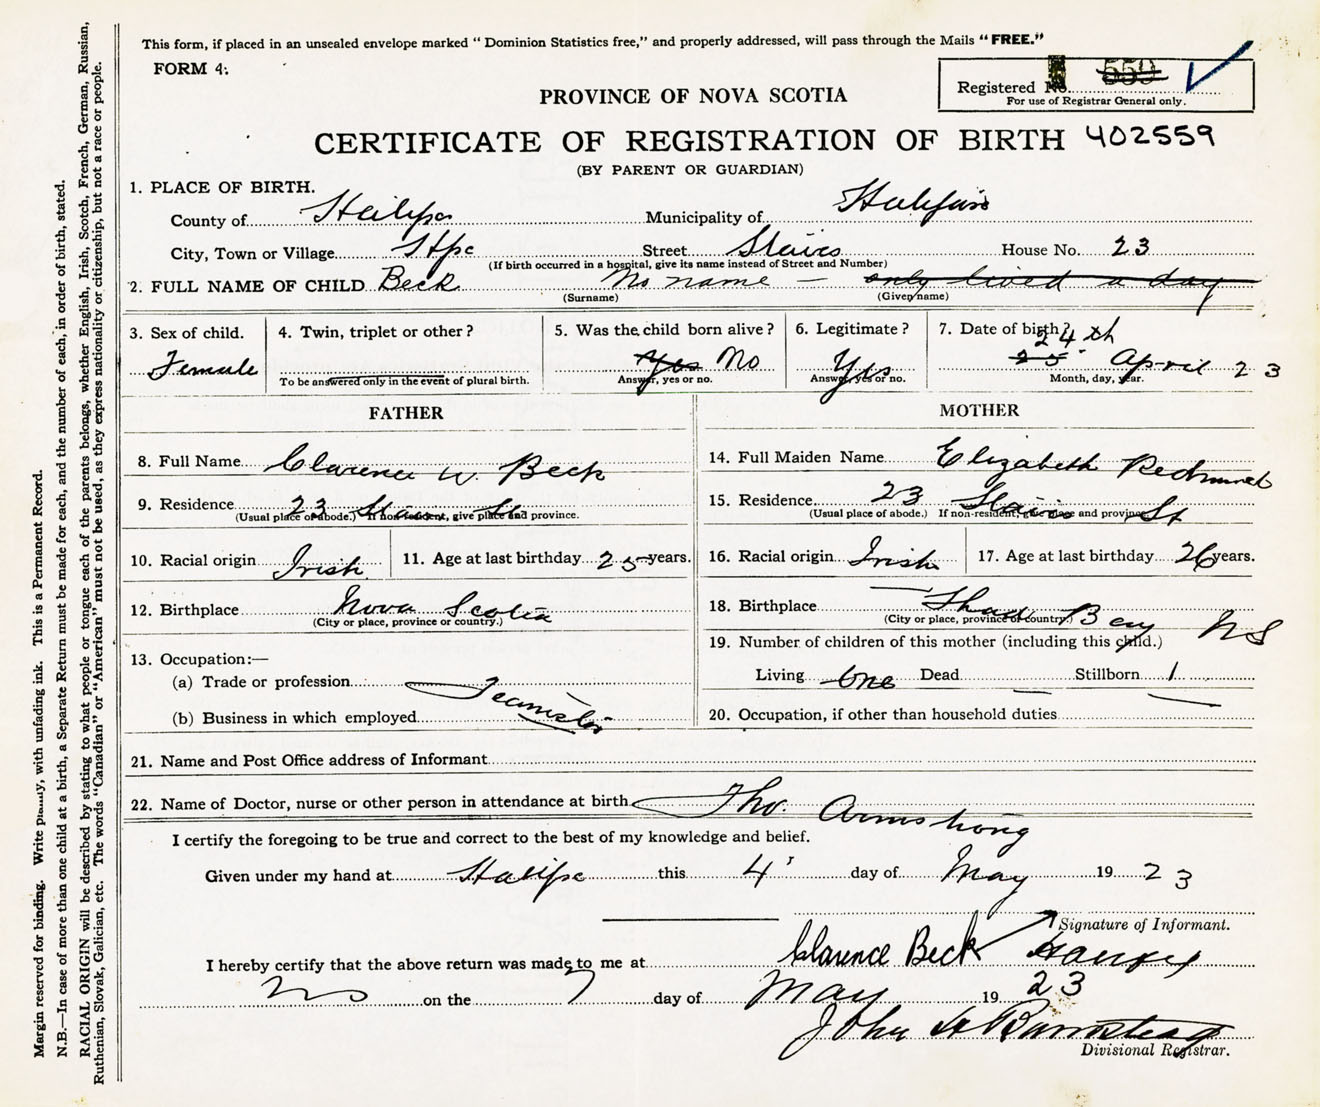 This form, if placed in an unsealed envelope marked "Dominion Statistics free," and properly addressed, will pass through the Mails "FREE."
FORM 4.
Registered No. 559
For use of Registrar General only.
PROVINCE OF NOVA SCOTIA
CERTIFICATE OF REGISTRATION OF BIRTH 402559
(BY PARENT OR GUARDIAN)
1. PLACE OF BIRTH.
County of Halifax Municipality of Halifax
City, Town or Village Hfx Street Stairs House No. 23
(If birth occurred in a hospital, give its name instead of Street and Number)
2. FULL NAME OF CHILD Beck No name — only lived a day
(Surname) (Given name)
3. Sex of child. 4. Twin, triplet or other? 5. Was the child born alive? 6. Legitimate? 7. Date of birth?
24th
Female Yes No Yes 25 April 23
To be answered only in the event of plural birth. Answer, yes or no. Answer, yes or no. Month, day, year.
FATHER
8. Full Name Clarence W. Beck
9. Residence 23 Stairs St
(Usual place of abode.) If non-resident, give place and province.
10. Racial origin Irish 11. Age at last birthday 25 years.
12. Birthplace Nova Scotia
(City or place, province or country.)
13. Occupation:—
(a) Trade or profession Teamster
(b) Business in which employed
MOTHER
14. Full Maiden Name Elizabeth Redmond
15. Residence 23 Stairs St
(Usual place of abode.) If non-resident, give place and province.
16. Racial origin Irish 17. Age at last birthday 26 years.
18. Birthplace Shad Bay NS
(City or place, province or country.)
19. Number of children of this mother (including this child.)
Living One Dead — Stillborn 1
20. Occupation, if other than household duties —
21. Name and Post Office address of Informant
22. Name of Doctor, nurse or other person in attendance at birth Tho. Armstrong
I certify the foregoing to be true and correct to the best of my knowledge and belief.
Given under my hand at Halifax this 4 day of May 19 23
Signature of Informant.
Clarence Beck
I hereby certify that the above return was made to me at Halifax
NS on the 7 day of May 19 23
John H Barnstead
Divisional Registrar.
Margin reserved for binding. Write plainly, with unfading ink. This is a Permanent Record.
N.B.—In case of more than one child at a birth, a Separate Return must be made for each, and the number of each, in order of birth, stated.
RACIAL ORIGIN will be described by stating to what people or tongue each of the parents belongs, whether English, Irish, Scotch, French, German, Russian,
Ruthenian, Slovak, Galician, etc. The words "Canadian" or "American" must not be used, as they express nationality or citizenship, but not a race or people.